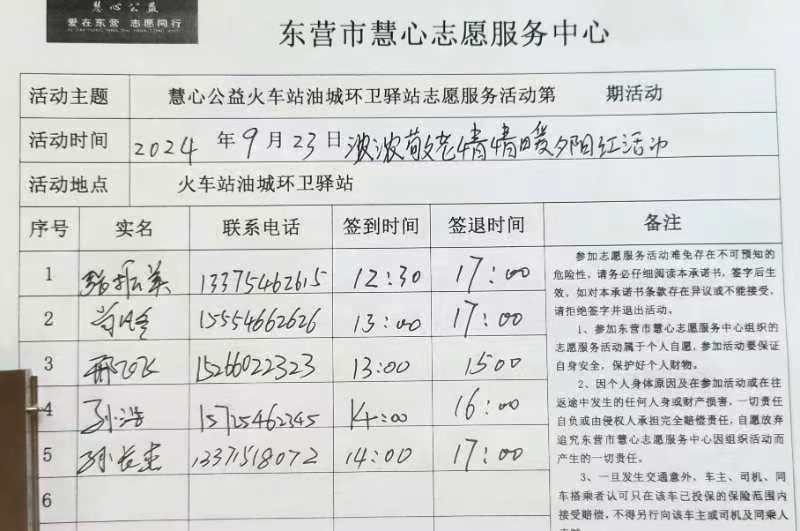 慧心公益
爱在东营 志愿同行
东营市慧心志愿服务中心
活动主题 慧心公益火车站油城环卫驿站志愿服务活动第 期活动
活动时间 2024 年 9 月 23 日 浓浓敬老情情暖夕阳红活动
活动地点 火车站油城环卫驿站
序号 实名 联系电话 签到时间 签退时间 备注
1 张振英 13375462615 12:30 17:00
2 15554662626 13:00 17:00
3 15266022323 13:00 15:00
4 孙浩 15725462345 14:00 16:00
5 孙长奎 13371518072 14:00 17:00
6
参加志愿服务活动难免存在不可预知的
危险性,请务必仔细阅读本承诺书,签字后生
效。如对本承诺书条款存在异议或不能接受,
请拒绝签字并退出活动。
1、参加东营市慧心志愿服务中心组织的
志愿服务活动属于个人自愿,参加活动要保证
自身安全,保护好个人财物。
2、因个人身体原因及在参加活动或在往
返途中发生的任何人身或财产损害,一切责任
自负或由侵权人承担完全赔偿责任,自愿放弃
追究东营市慧心志愿服务中心因组织活动而
产生的一切责任。
3、一旦发生交通意外,车主、司机、同
车搭乘者认可只在该车已投保的保险范围内
接受赔偿,不得另行向该车主或司机及同乘人